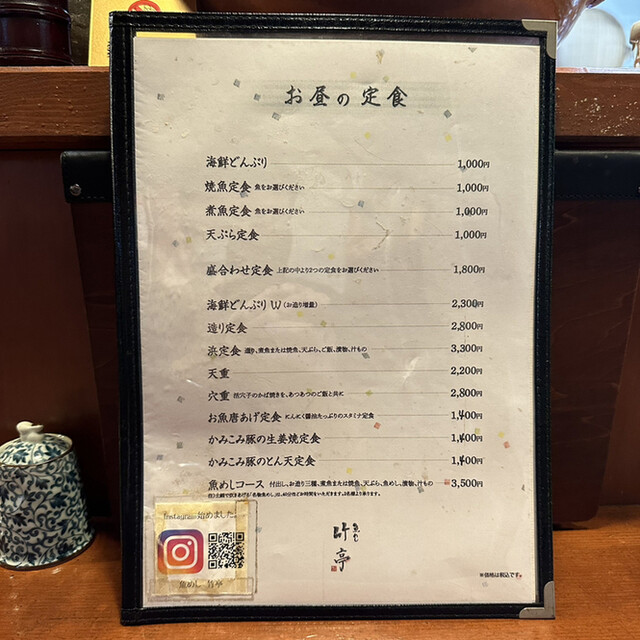 お昼の定食
海鮮どんぶり 1,000円
焼魚定食 魚をお選びください 1,000円
煮魚定食 魚をお選びください 1,000円
天ぷら定食 1,000円
盛合わせ定食 上記の中より2つの定食をお選びください 1,800円
海鮮どんぶりW(お造り増量) 2,300円
造り定食 2,800円
浜定食 造り、煮魚または焼魚、天ぷら、ご飯、漬物、汁もの 3,300円
天重 2,200円
穴重 活穴子のかば焼きを、あつあつのご飯と共に 2,800円
お魚唐あげ定食 にんにく醤油たっぷりのスタミナ定食 1,400円
かみこみ豚の生姜焼定食 1,400円
かみこみ豚のとん天定食 1,400円
魚めしコース 付出し、お造り三種、煮魚または焼魚、天ぷら、魚めし、漬物、汁もの 3,500円
Instagram始めました
魚めし 竹亭
魚めし
竹亭
※価格は税込です。